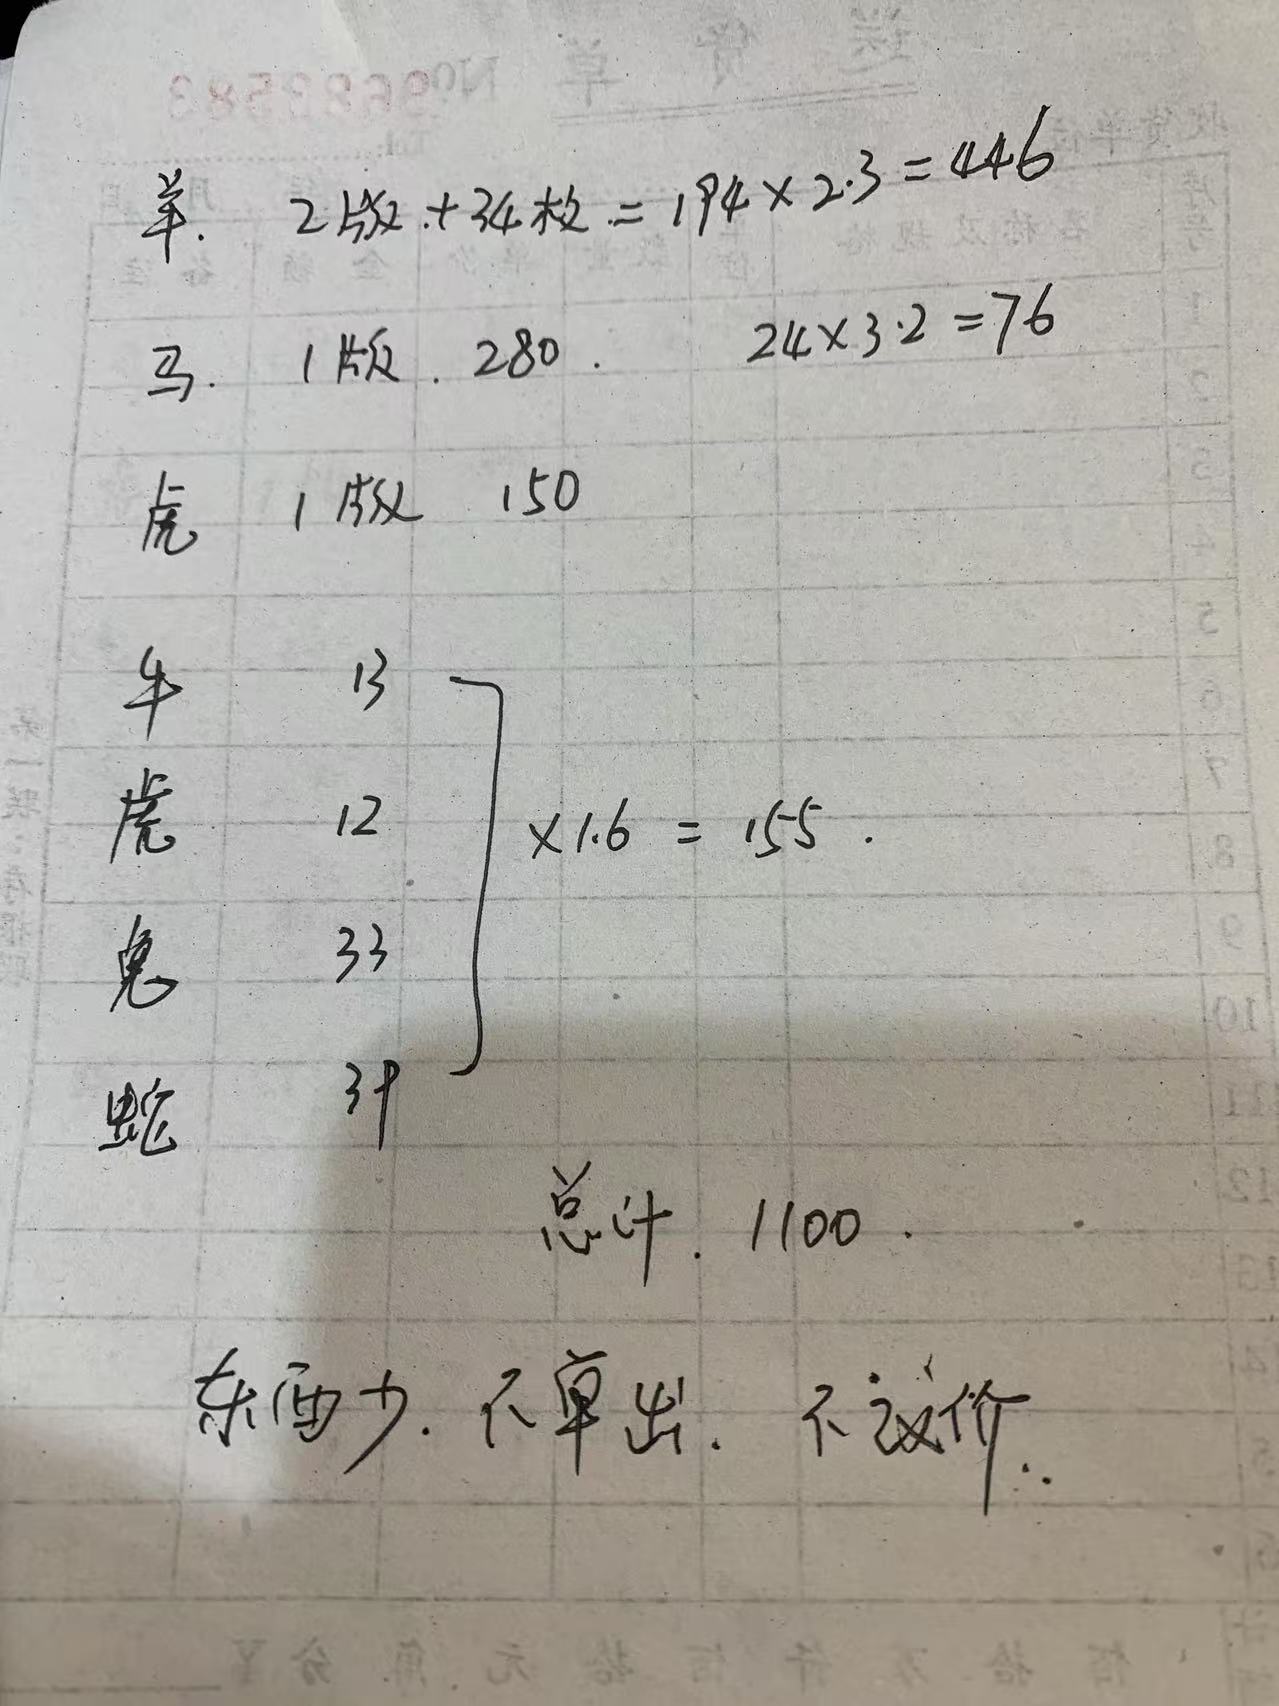 羊. 2版.+34枚.=194×2.3=446
马. 1版. 280. 24×3.2=76
虎 1版 150
牛 13
虎 12
×1.6=155.
兔 33
蛇 39
总计. 1100.
东西少. 不单出. 不议价..